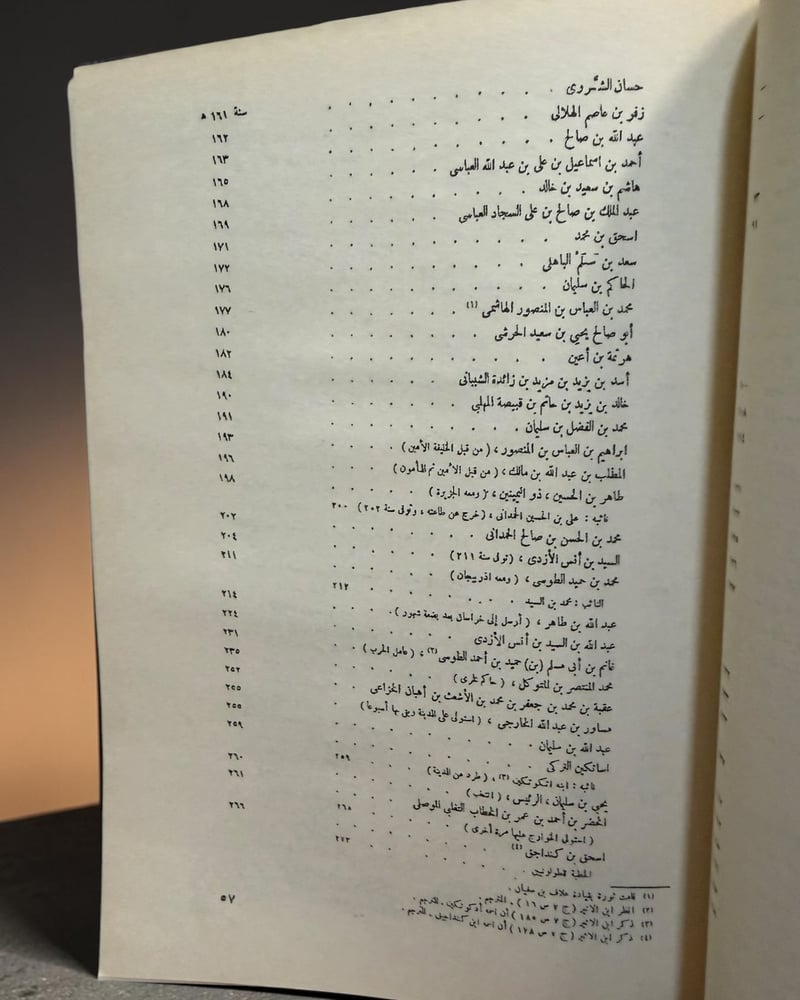 حسان الشَّروى . . . . . . . . . سنة ١٦١ هـ
زفر بن عاصم الهلالى . . . . . . . . ١٦٢
عبد الله بن صالح . . . . . . . . ١٦٣
أحمد بن اسماعيل بن على بن عبد الله العباسى . . . . . ١٦٥
هاشم بن سعيد بن خالد . . . . . . . . ١٦٨
عبد الملك بن صالح بن على السجاد العباسى . . . . . ١٦٩
اسحق بن محمد . . . . . . . . ١٧١
سعد بن سَلْم الباهلى . . . . . . . . ١٧٢
الحاكم بن سليمان . . . . . . . . ١٧٦
محمد بن العباس بن المنصور الهاشمى (١) . . . . . ١٧٧
أبو صالح يحيى بن سعيد الحرشى . . . . . . ١٨٠
هرثمة بن أعين . . . . . . . . ١٨٢
أسد بن يزيد بن مزيد بن زائدة الشيبانى . . . . . ١٨٤
خالد بن يزيد بن حاتم بن قبيصة المهلبى . . . . . ١٩٠
محمد بن الفضل بن سليمان . . . . . . . ١٩١
ابراهيم بن العباس بن المنصور ، ( من قبل الخليفة الأمين ) . . . ١٩٣
المطلب بن عبد الله بن مالك ، ( من قبل الأمين ثم المأمون ) . . . ١٩٦
طاهر بن الحسين ، ذو اليمينين ، ( ومعه الجزيرة ) . . . . ١٩٨
نائبه : على بن الحسين الحمدانى ، ( خرج عن طاعته ، وتولى سنة ٢٠٢ ) ٢٠٠
محمد بن الحسن بن صالح الحمدانى . . . . . . ٢٠٢
السيد بن أنس الأزدى ، ( تولى سنة ٢١١ ) . . . . . ٢٠٤
محمد بن حميد الطوسى ، ( ومعه اذربيجان ) . . . . . ٢١١
النائب : محمد بن السيد . . . . . . ٢١٢
عبد الله بن طاهر ، ( أرسل إلى خراسان بعد بضعة شهور ) . . . ٢١٤
عبد الله بن السيد بن أنس الأزدى . . . . . . ٢٢٤
غانم بن أبى مسلم (بن) حميد بن أحمد الطوسى (٢) ، ( عامل الحرب ) . . ٢٣١
محمد المنتصر بن المتوكل ، ( حاكم فخرى ) . . . . . ٢٣٥
عقبة بن محمد بن جعفر بن محمد بن الأشعث بن أهبان الخزاعى . . ٢٥٢
مساور بن عبد الله الخارجى ، ( استولى على المدينة وبقى بها أسبوعا ) . ٢٥٥
عبد الله بن سليمان . . . . . . . . ٢٥٥
اساتكين التركى . . . . . . . . ٢٥٩
نائبه : ابنه اتكوتكين (٣) ، ( طرد من المدينة ) ٢٥٩
يحيى بن سليمان ، الرئيس ، ( انتخب ) . . . . . ٢٦٠
الخضر بن أحمد بن عمر بن الخطاب التغلبى الموصلى . . . ٢٦١
( استولى الخوارج عليها مرة أخرى ) ٢٦٨
اسحق بن كنداجق (٤) . . . . . . . ٢٦٦
الخطبة للطولونيين . . . . . . ٢٧٣
(١) قامت ثورة بقيادة عطاف بن سفيان .
(٢) انظر ابن الاثير ( ج ٧ ص ١٦ ) . المترجم .
(٣) ذكر ابن الاثير ( ج ٧ ص ١٨٥ ) أن اسمه أذكوتكين . المترجم .
(٤) ذكر ابن الاثير ( ج ٧ ص ١٢٨ ) أن اسمه ابن كنداجيق . المترجم .
٥٧